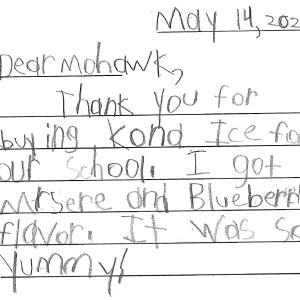 May 14, 202
Dear mohawk,
Thank you for
buying kond Ice for
our school. I got
mrsere and Blueberr
flavor. It was so
yummy!